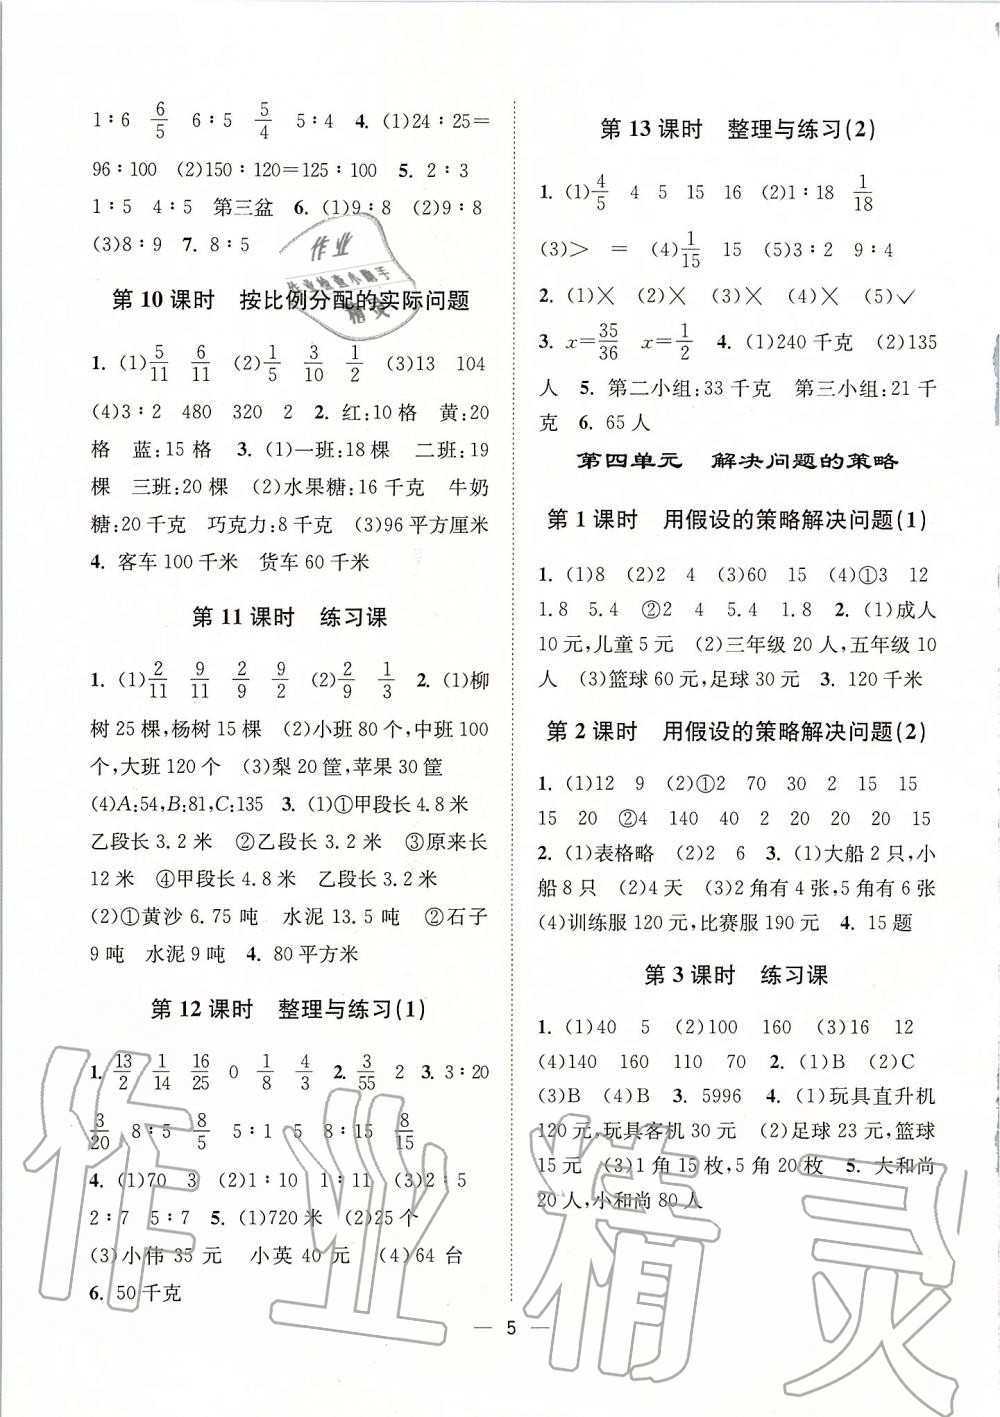 1∶6 6/5 6∶5 5/4 5∶4 4. (1)24∶25=
96∶100 (2)150∶120=125∶100 5. 2∶3
1∶5 4∶5 第三盆 6. (1)9∶8 (2)9∶8
(3)8∶9 7. 8∶5
作业
作业检查小助手
精灵
第10课时 按比例分配的实际问题
1. (1)5/11 6/11 (2)1/5 3/10 1/2 (3)13 104
(4)3∶2 480 320 2 2. 红:10格 黄:20
格 蓝:15格 3. (1)一班:18棵 二班:19
棵 三班:20棵 (2)水果糖:16千克 牛奶
糖:20千克 巧克力:8千克 (3)96平方厘米
4. 客车100千米 货车60千米
第11课时 练习课
1. (1)2/11 9/11 2/9 9/2 (2)2/9 1/3 2. (1)柳
树25棵,杨树15棵 (2)小班80个,中班100
个,大班120个 (3)梨20筐,苹果30筐
(4)A:54,B:81,C:135 3. (1)①甲段长4.8米
乙段长3.2米 ②乙段长3.2米 ③原来长
12米 ④甲段长4.8米 乙段长3.2米
(2)①黄沙6.75吨 水泥13.5吨 ②石子
9吨 水泥9吨 4. 80平方米
第12课时 整理与练习(1)
1. 13/2 1/14 16/25 0 1/8 4/3 2. 3/55 2 3. 3∶20
3/20 8∶5 8/5 5∶1 5 8∶15 8/15
4. (1)70 3 (2)1∶10 1∶11 (3)2∶5
2∶7 5∶7 5. (1)720米 (2)25个
(3)小伟35元 小英40元 (4)64台
6. 50千克
第13课时 整理与练习(2)
1. (1)4/5 4 5 15 16 (2)1∶18 1/18
(3)> = (4)1/15 15 (5)3∶2 9∶4
2. (1)✕ (2)✕ (3)✕ (4)✕ (5)✓
3. x=35/36 x=1/2 4. (1)240千克 (2)135
人 5. 第二小组:33千克 第三小组:21千
克 6. 65人
第四单元 解决问题的策略
第1课时 用假设的策略解决问题(1)
1. (1)8 (2)2 4 (3)60 15 (4)①3 12
1.8 5.4 ②2 4 5.4 1.8 2. (1)成人
10元,儿童5元 (2)三年级20人,五年级10
人 (3)篮球60元,足球30元 3. 120千米
第2课时 用假设的策略解决问题(2)
1. (1)12 9 (2)①2 70 30 2 15 15
15 20 ②4 140 40 2 20 20 20 15
2. (1)表格略 (2)2 6 3. (1)大船2只,小
船8只 (2)4天 (3)2角有4张,5角有6张
(4)训练服120元,比赛服190元 4. 15题
第3课时 练习课
1. (1)40 5 (2)100 160 (3)16 12
(4)140 160 110 70 2. (1)B (2)C
(3)B (4)B 3. 5996 4. (1)玩具直升机
120元,玩具客机30元 (2)足球23元,篮球
15元 (3)1角15枚,5角20枚 5. 大和尚
20人,小和尚80人
作业精灵
— 5 —